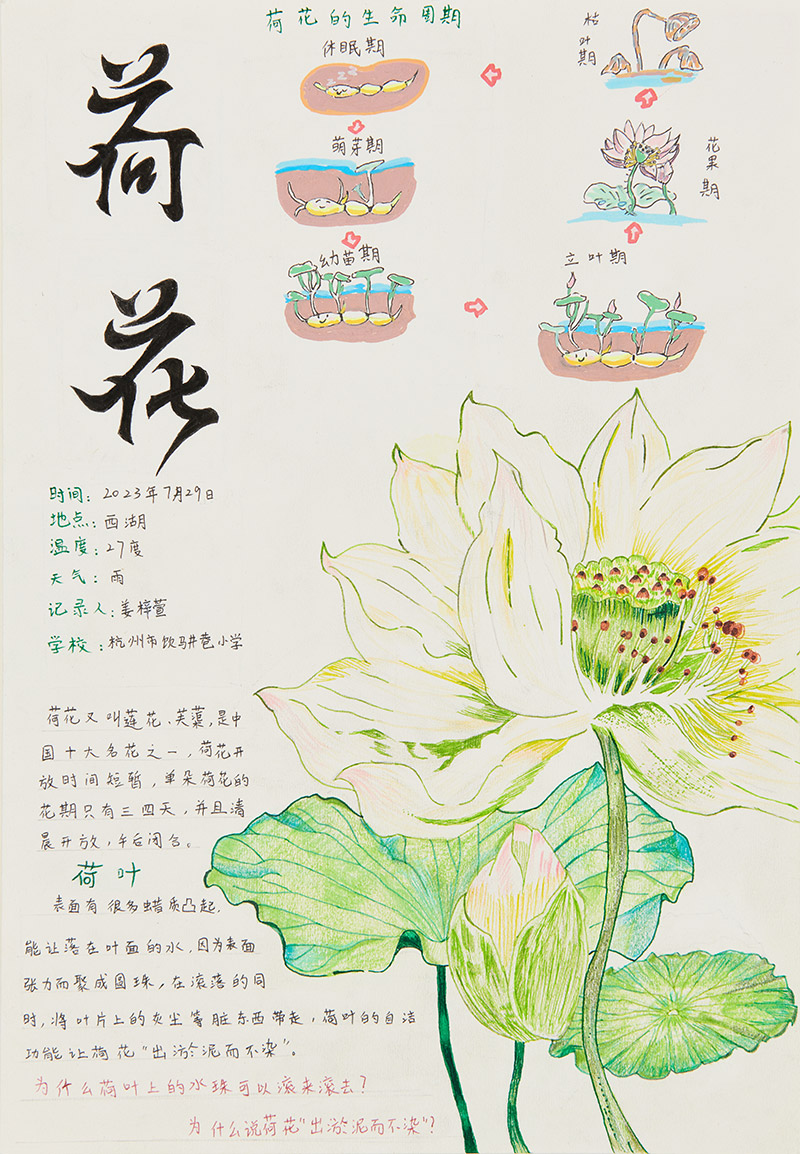 荷花
荷花的生命周期
休眠期
萌芽期
幼苗期
立叶期
花果期
枯叶期
时间：2023年7月29日
地点：西湖
温度：27度
天气：雨
记录人：姜梓萱
学校：杭州市饮马井巷小学
荷花又叫莲花、芙蕖，是中
国十大名花之一，荷花开
放时间短暂，单朵荷花的
花期只有三四天，并且清
晨开放，午后闭合。
荷叶
表面有很多蜡质凸起，
能让落在叶面的水，因为表面
张力而聚成圆珠，在滚落的同
时，将叶片上的灰尘等脏东西带走，荷叶的自洁
功能让荷花“出淤泥而不染”。
为什么荷叶上的水珠可以滚来滚去？
为什么说荷花“出淤泥而不染”？